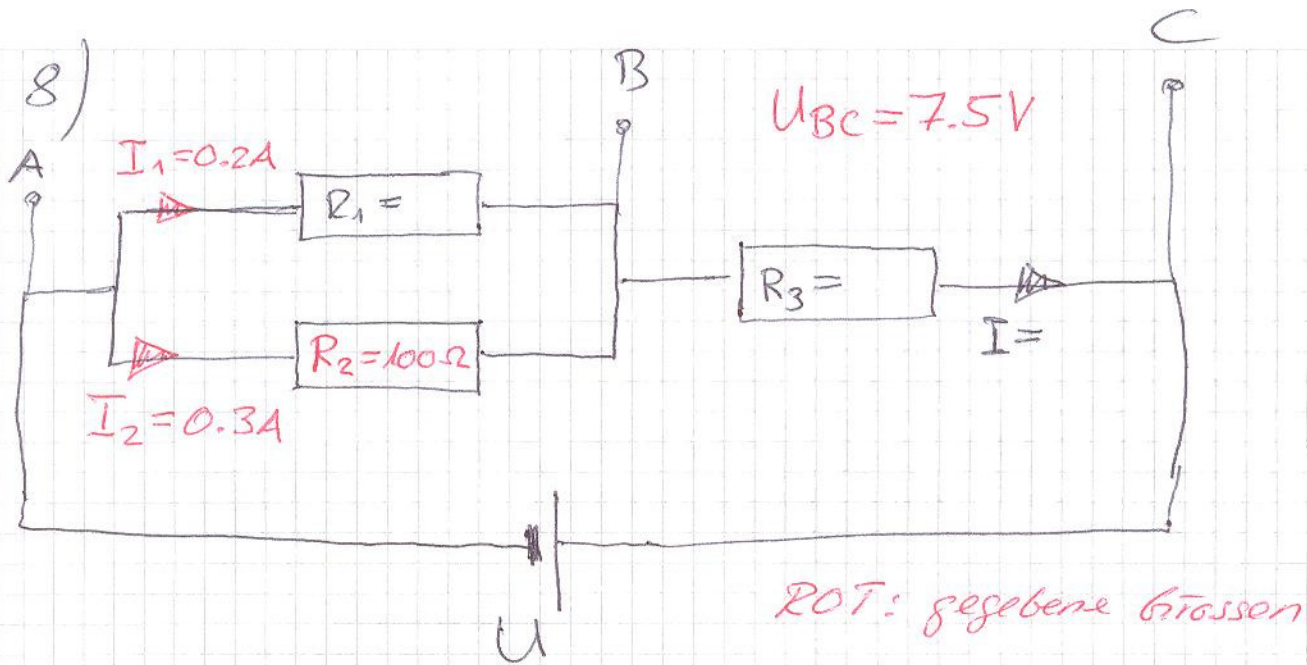 8)
A
B
C
U_BC = 7.5V
I₁ = 0.2A
R₁ =
R₂ = 100Ω
I₂ = 0.3A
R₃ =
I =
U
ROT: gegebene Grössen